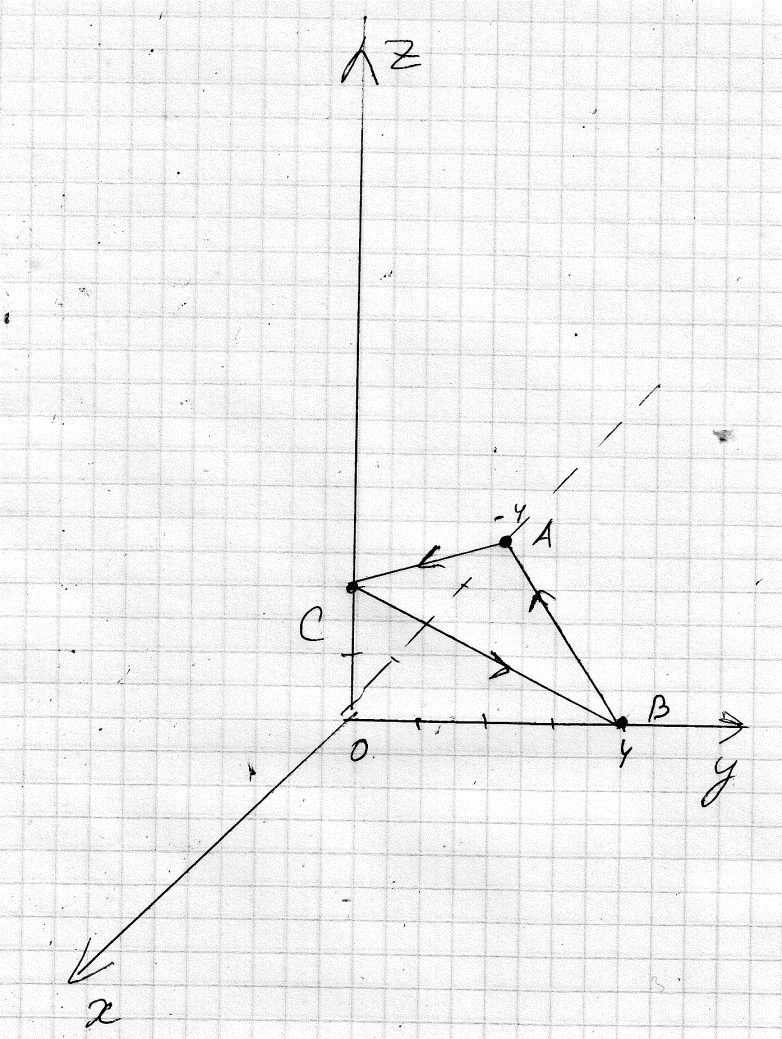 z
-4 A
C
B
0 4
y
x